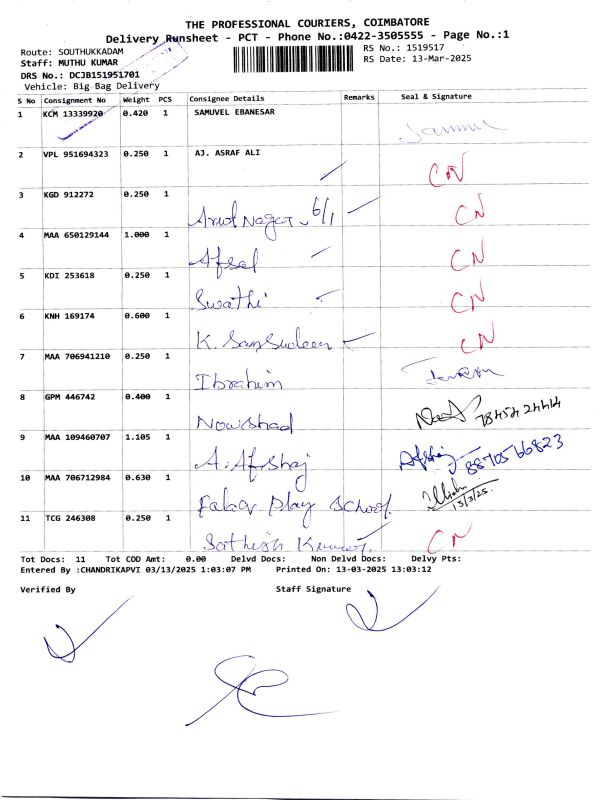 THE PROFESSIONAL COURIERS, COIMBATORE
Delivery Runsheet - PCT - Phone No.:0422-3505555 - Page No.:1
Route: SOUTHUKKADAM
RS No.: 1519517
Staff: MUTHU KUMAR
RS Date: 13-Mar-2025
DRS No.: DCJB151951701
Vehicle: Big Bag Delivery
S No Consignment No Weight PCS Consignee Details Remarks Seal & Signature
1 KCM 13339920 0.420 1 SAMUVEL EBANESAR
2 VPL 951694323 0.250 1 AJ. ASRAF ALI CN
3 KGD 912272 0.250 1 Arul Nagar 6/1 CN
4 MAA 650129144 1.000 1 Afsal CN
5 KDI 253618 0.250 1 Swathi CN
6 KNH 169174 0.600 1 K. Samsudeen CN
7 MAA 706941210 0.250 1 Ibrahim
8 GPM 446742 0.400 1 Nowshad
9 MAA 109460707 1.105 1 A. Afshaj Afshaj 8870566823
10 MAA 706712984 0.630 1 Play School 13/3/25.
11 TCG 246308 0.250 1 Sathish Kumar. CN
Tot Docs: 11 Tot COD Amt: 0.00 Delvd Docs: Non Delvd Docs: Delvy Pts:
Entered By :CHANDRIKAPVI 03/13/2025 1:03:07 PM Printed On: 13-03-2025 13:03:12
Verified By Staff Signature